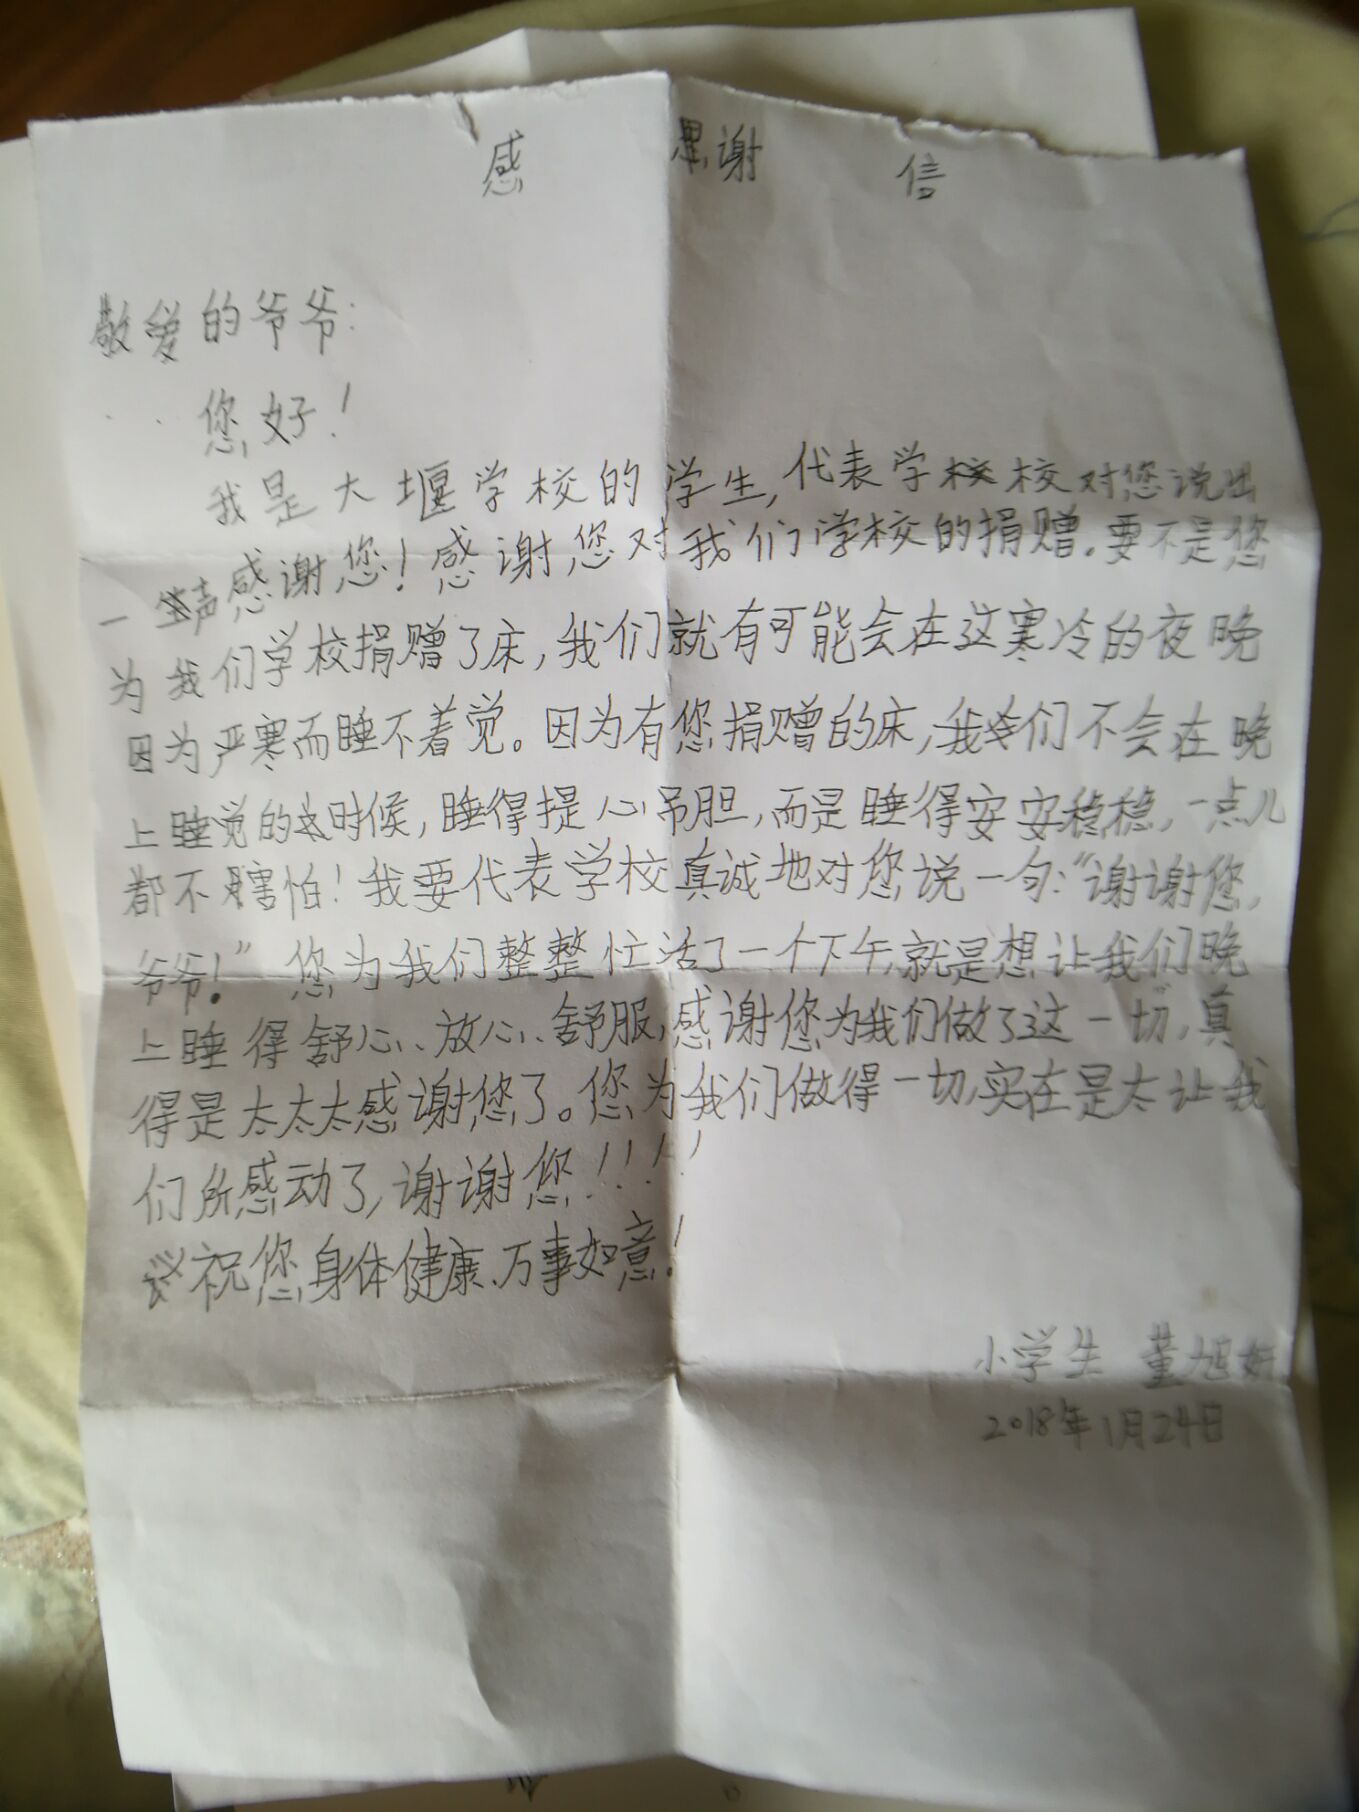 感 谢 信
敬爱的爷爷:
您好!
我是大堰学校的学生,代表学校对您说出
一声感谢您!感谢您对我们学校的捐赠。要不是您
为我们学校捐赠了床,我们就有可能会在这寒冷的夜晚
因为严寒而睡不着觉。因为有您捐赠的床,我们不会在晚
上睡觉的时候,睡得提心吊胆,而是睡得安安稳稳,一点儿
都不害怕!我要代表学校真诚地对您说一句:“谢谢您,
爷爷!”您为我们整整忙活了一个下午,就是想让我们晚
上睡得舒心、放心、舒服,感谢您为我们做了这一切,真
得是太太太感谢您了。您为我们做得一切,实在是太让我
们所感动了,谢谢您!!!!
祝您身体健康、万事如意!
小学生 董旭妍
2018年1月24日